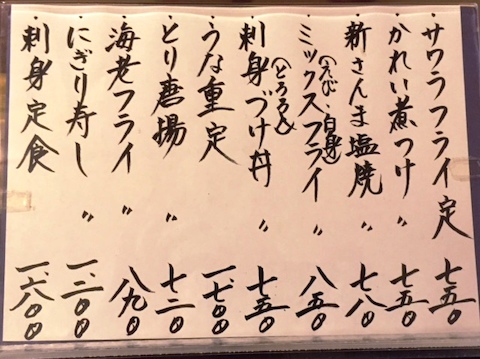 ・サワラフライ定 七五〇
・かれい煮つけ 〃 七五〇
・新さんま塩焼 〃 七八〇
・ミックスフライ 〃 八五〇
(えび・白身)
・刺身づけ丼 〃 七五〇
(とろろ入)
・うな重定 一、七〇〇
・とり唐揚 〃 七二〇
・海老フライ 八九〇
・にぎり寿し 〃 一、二〇〇
・刺身定食 一、六〇〇